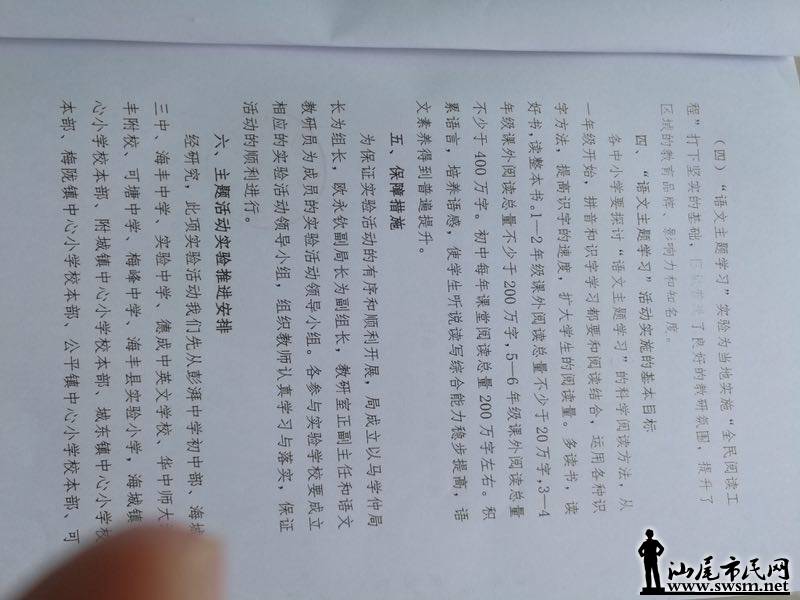 （四）“语文主题学习”实验为当地实施“全民阅读工
程”打下坚实的基础，了良好的教研氛围，提升了
区域的教育品牌、影响力和知名度。
四、“语文主题学习”活动实施的基本目标
各中小学要探讨“语文主题学习”的科学阅读方法，从
一年级开始，拼音和识字学习都要和阅读结合，运用各种识
字方法，提高识字的速度，扩大学生的阅读量。多读书，读
好书，读整本书。1—2年级课外阅读总量不少于20万字，3—4
年级课外阅读总量不少于200万字，5—6年级课外阅读总量
不少于400万字。初中每年课堂阅读总量200万字左右。积
累语言，培养语感，使学生听说读写综合能力稳步提高，语
文素养得到普遍提升。
五、保障措施
为保证实验活动的有序和顺利开展，局成立以马学仲局
长为组长，欧永钦副局长为副组长，教研室正副主任和语文
教研员为成员的实验活动领导小组。各参与实验学校要成立
相应的实验活动领导小组，组织教师认真学习与落实，保证
活动的顺利进行。
六、主题活动实验推进安排
经研究，此项实验活动我们先从彭湃中学初中部、海城
三中、海丰中学、实验中学、德成中英文学校、华中师大
丰附校、可塘中学、梅峰中学、海丰县实验小学，海城镇
心小学校本部、附城镇中心小学校本部、城东镇中心小学校
本部、梅陇镇中心小学校本部、公平镇中心小学校本部、可
汕尾市民网
www.swsm.net